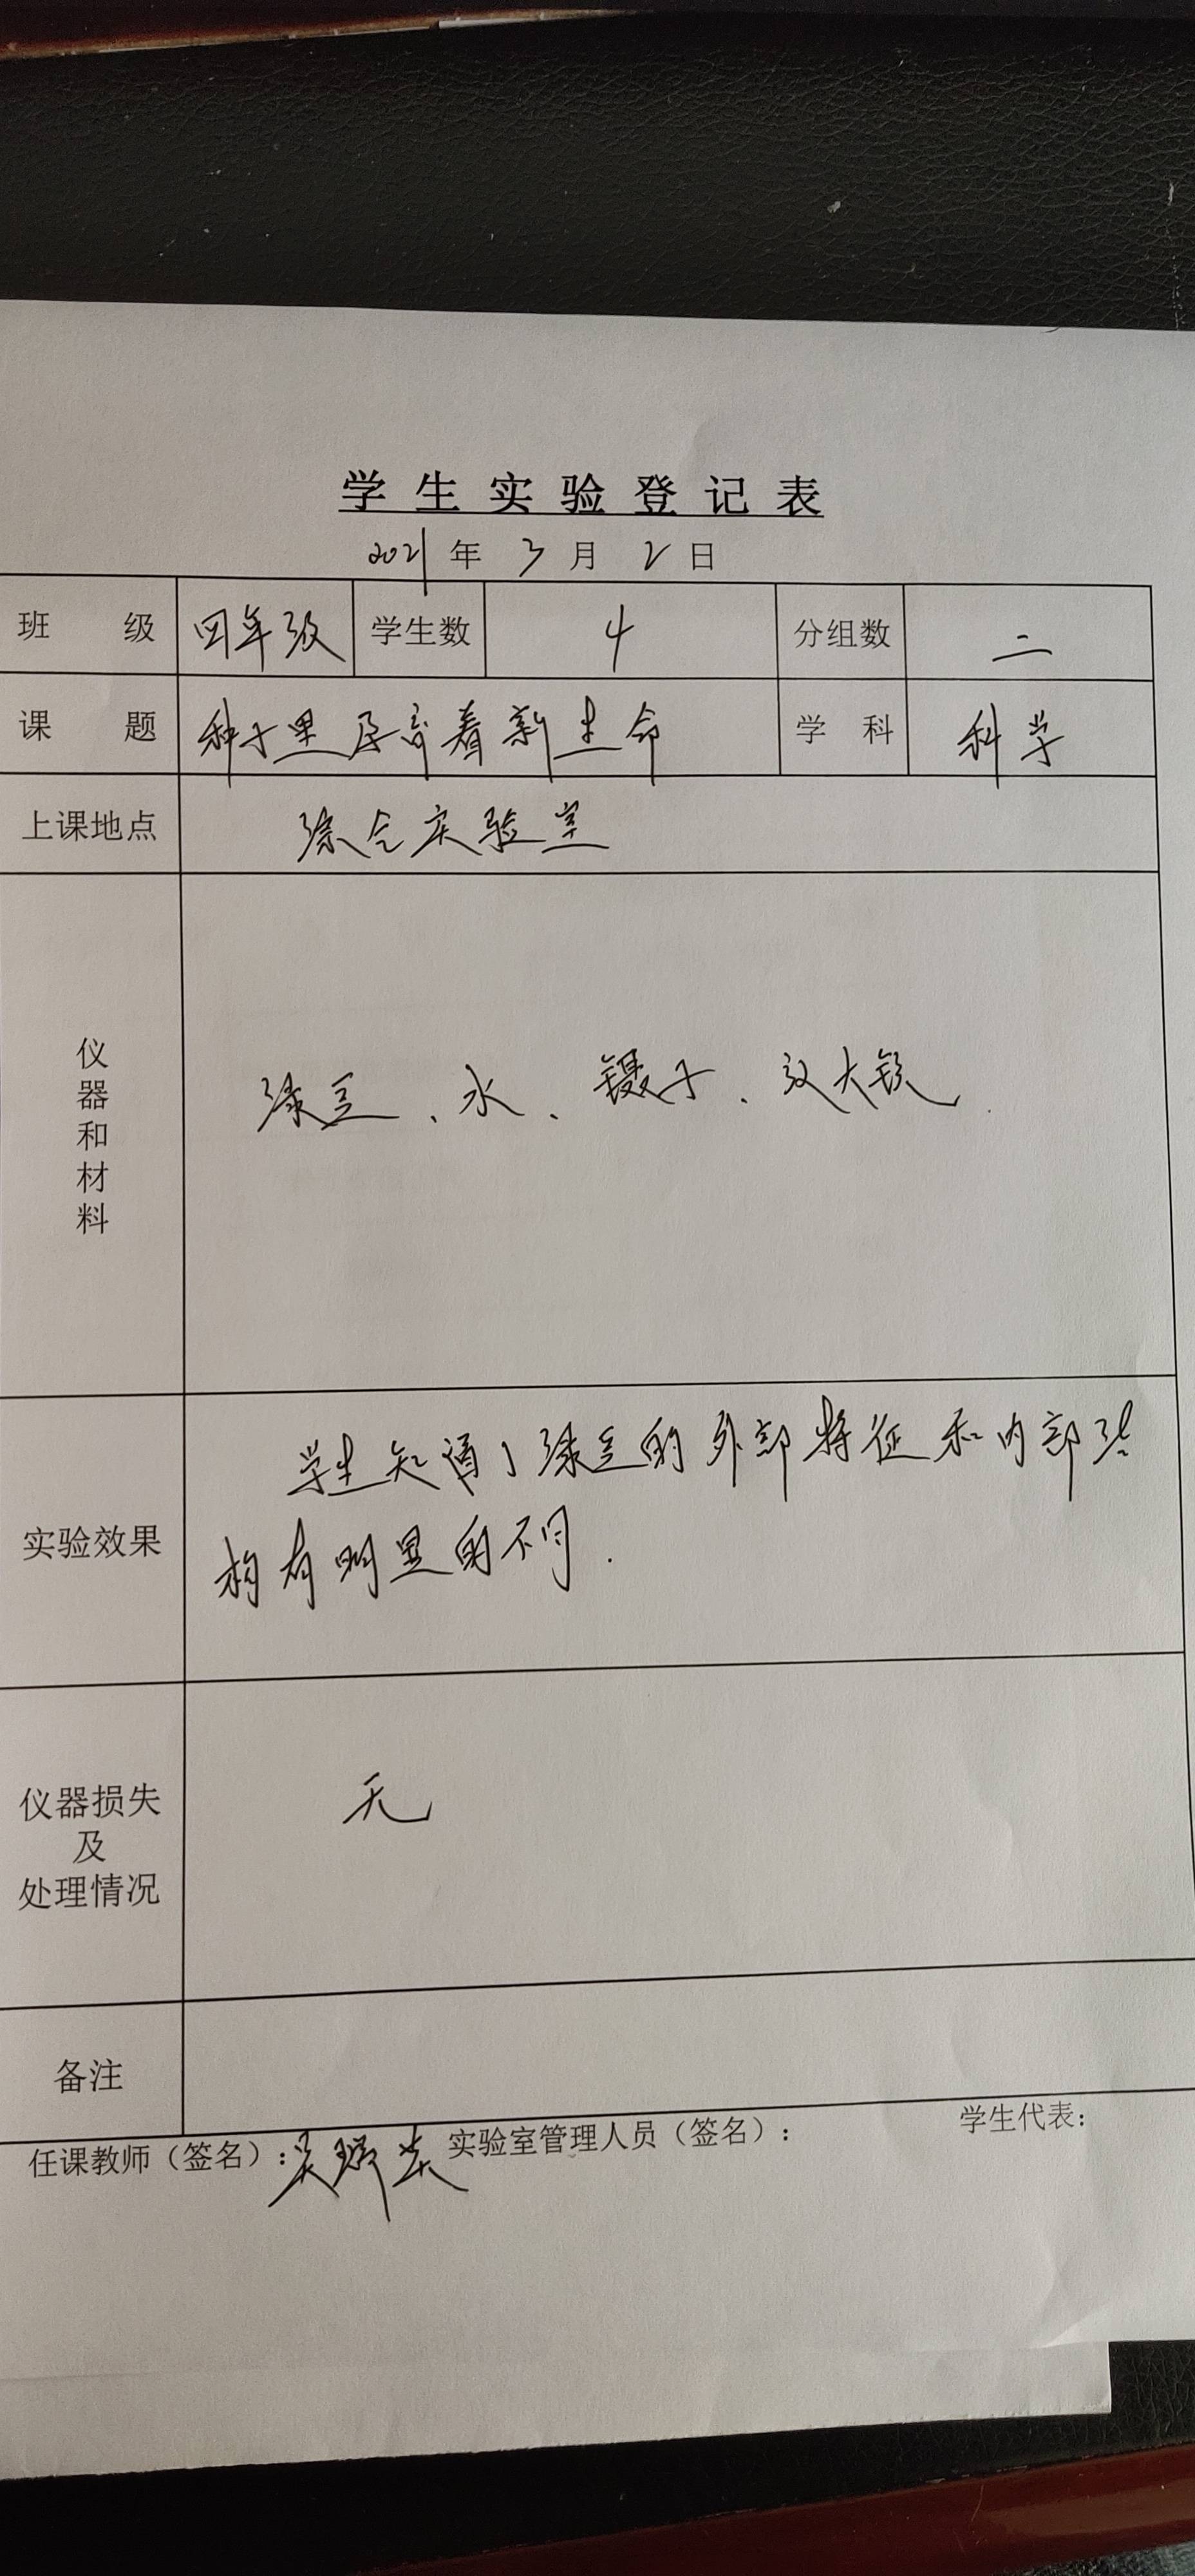 学生实验登记表
2021年3月2日
班级 四年级 学生数 4 分组数 二
课题 种子里孕育着新生命 学科 科学
上课地点 综合实验室
仪器和材料 绿豆、水、镊子、放大镜.
实验效果 学生知道了绿豆的外部特征和内部结
构有明显的不同.
仪器损失
及
处理情况
无
备注
任课教师（签名）：吴 实验室管理人员（签名）： 学生代表：